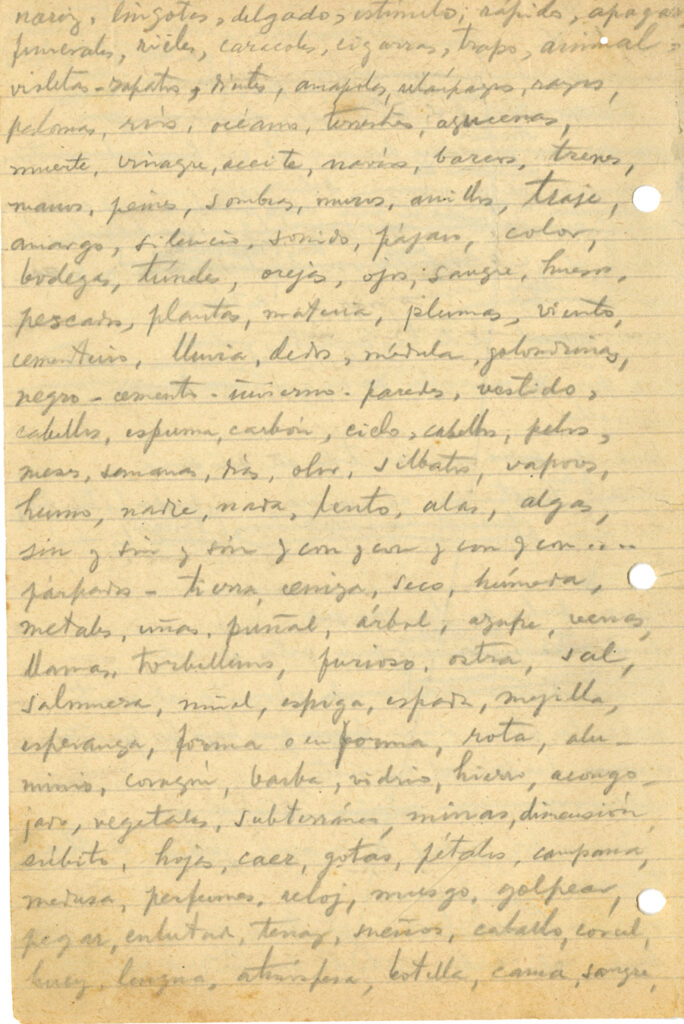 nariz, lingotes, delgado, estímulo, rápido, apagar,
funerales, rieles, caracoles, cigarras, trapo, animal =
violetas - zapatos, dientes, amapolas, relámpagos, rayos,
palomas, ríos, océano, terrestres, azucenas,
muerte, vinagre, aceite, navíos, barcos, trenes,
manos, peines, sombras, muros, anillos, traje,
amargo, silencio, sonido, pájaro, color,
bodegas, túneles, orejas, ojos, sangre, huesos,
pescados, plantas, materia, plumas, viento,
cementerio, lluvia, dedos, médula, golondrinas,
negro - cemento - invierno - paredes, vestido,
cabellos, espuma, carbón, cielo, cabellos, pelos,
meses, semanas, días, olor, silbatos, vapores,
humo, nadie, nada, lento, alas, algas,
sin y sin y sin y con y con y con y con ....
párpados - tierra, ceniza, seco, húmeda,
metales, uñas, puñal, árbol, azufre, venas,
llamas, torbellinos, furioso, ostra, sal,
salmuera, espiga, espada, mejilla,
esperanza, forma o en forma, rota, alu-
minio, corazón, barba, vidrio, hierro, acongo-
jado, vegetales, subterráneo, minas, dimensión,
súbito, hojas, caer, gotas, pétalos, campana,
medusa, perfumes, reloj, musgo, golpear,
pegar, enlutada, tenaz, sueños, caballo, corcel,
buey, lengua, atmósfera, botella, cama, sangre,